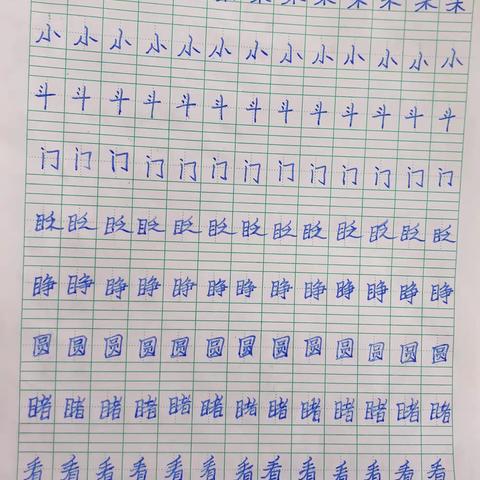 小小小小小小小小小小小小小
斗斗斗斗斗斗斗斗斗斗斗斗斗
门门门门门门门门门门门门门
眨眨眨眨眨眨眨眨眨眨眨眨眨
睁睁睁睁睁睁睁睁睁睁睁睁睁
圆圆圆圆圆圆圆圆圆圆圆圆圆
睹睹睹睹睹睹睹睹睹睹睹睹睹
看看看看看看看看看看看看看